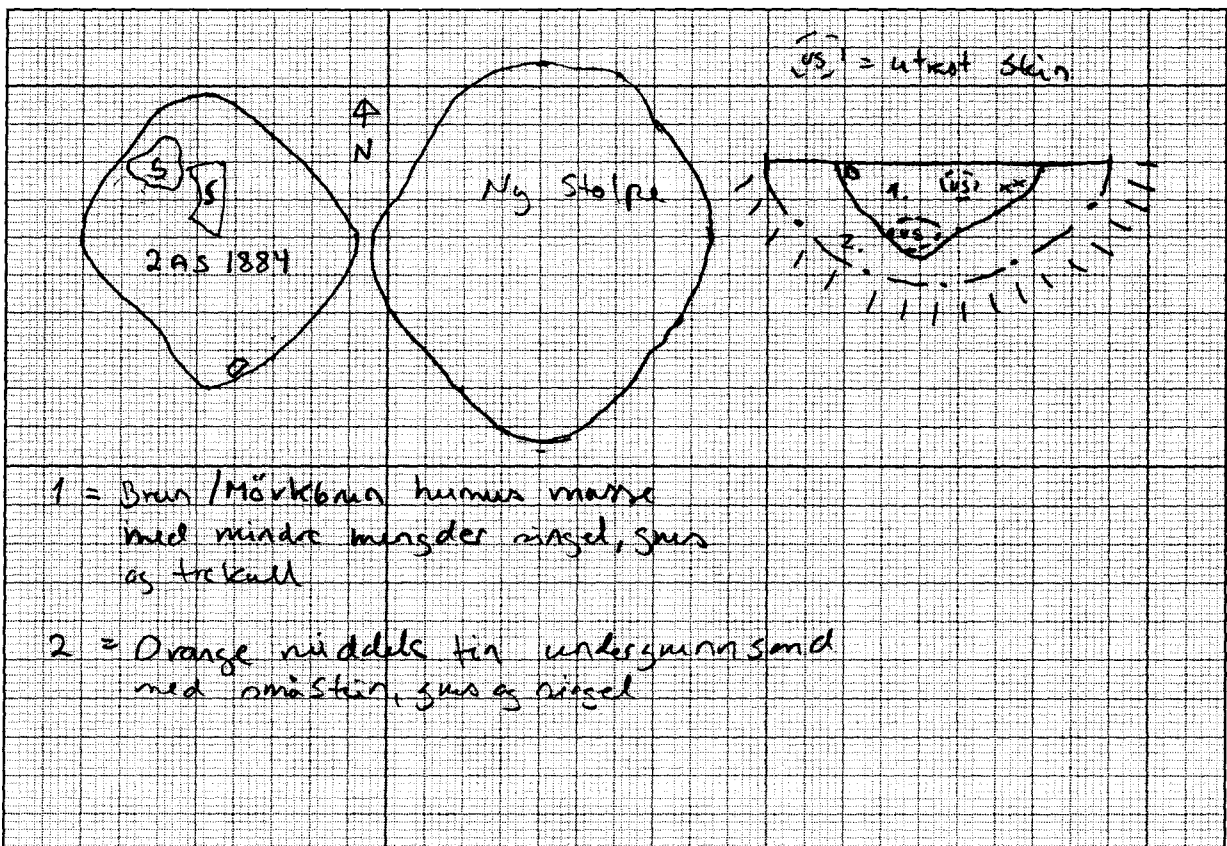 US = utrast Stein
N
S
S
2AS 1884
Ny Stolpe
1. (US) xx
US
2.
1 = Brun /Mörkbrun humus masse
med mindre mengder singel, grus
og trekull
2 = Orange middels fin undergrunnsand
med småstein, grus og singel